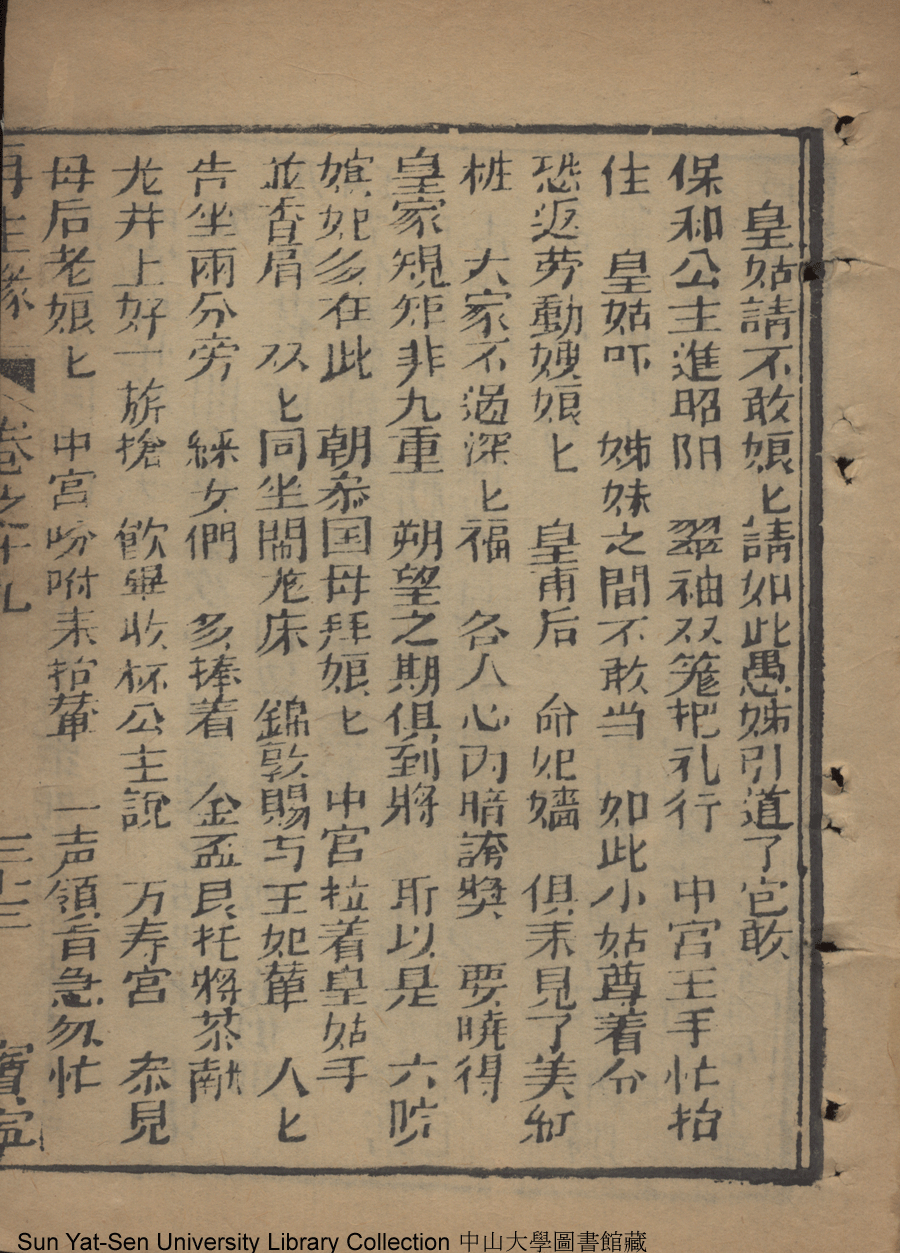 皇姑請不敢娘匕請如此愚姊引道了它敢
保和公主進昭阳　翠袖双笼把礼行　中宮王手忙抬
住　皇姑吓　姊妹之間不敢当　如此小姑尊着分
恐返劳動嫂娘匕　皇甫后　命妃嬙　俱耒見了美紅
桩　大家不過深匕福　各人心內暗誇奬　要曉得
皇家規矩非九重　朔望之期俱到將　所以是　六院
嫔妃多在此　朝叅国母拜娘匕　中宮拉着皇姑手
並香肩　双匕同坐鬧龙床　錦敦賜与王妃軰　人匕
告坐兩分旁　綵女們　多捧着　金盃艮托將茶献
龙井上好一旂搶　飲畢收杯公主說　万寿宮　叅見
母后老娘匕　中宮吩咐耒抬輦　一声領旨急勿忙
再生緣　卷之十九　三十三　寶寧
Sun Yat-Sen University Library Collection 中山大學圖書館藏